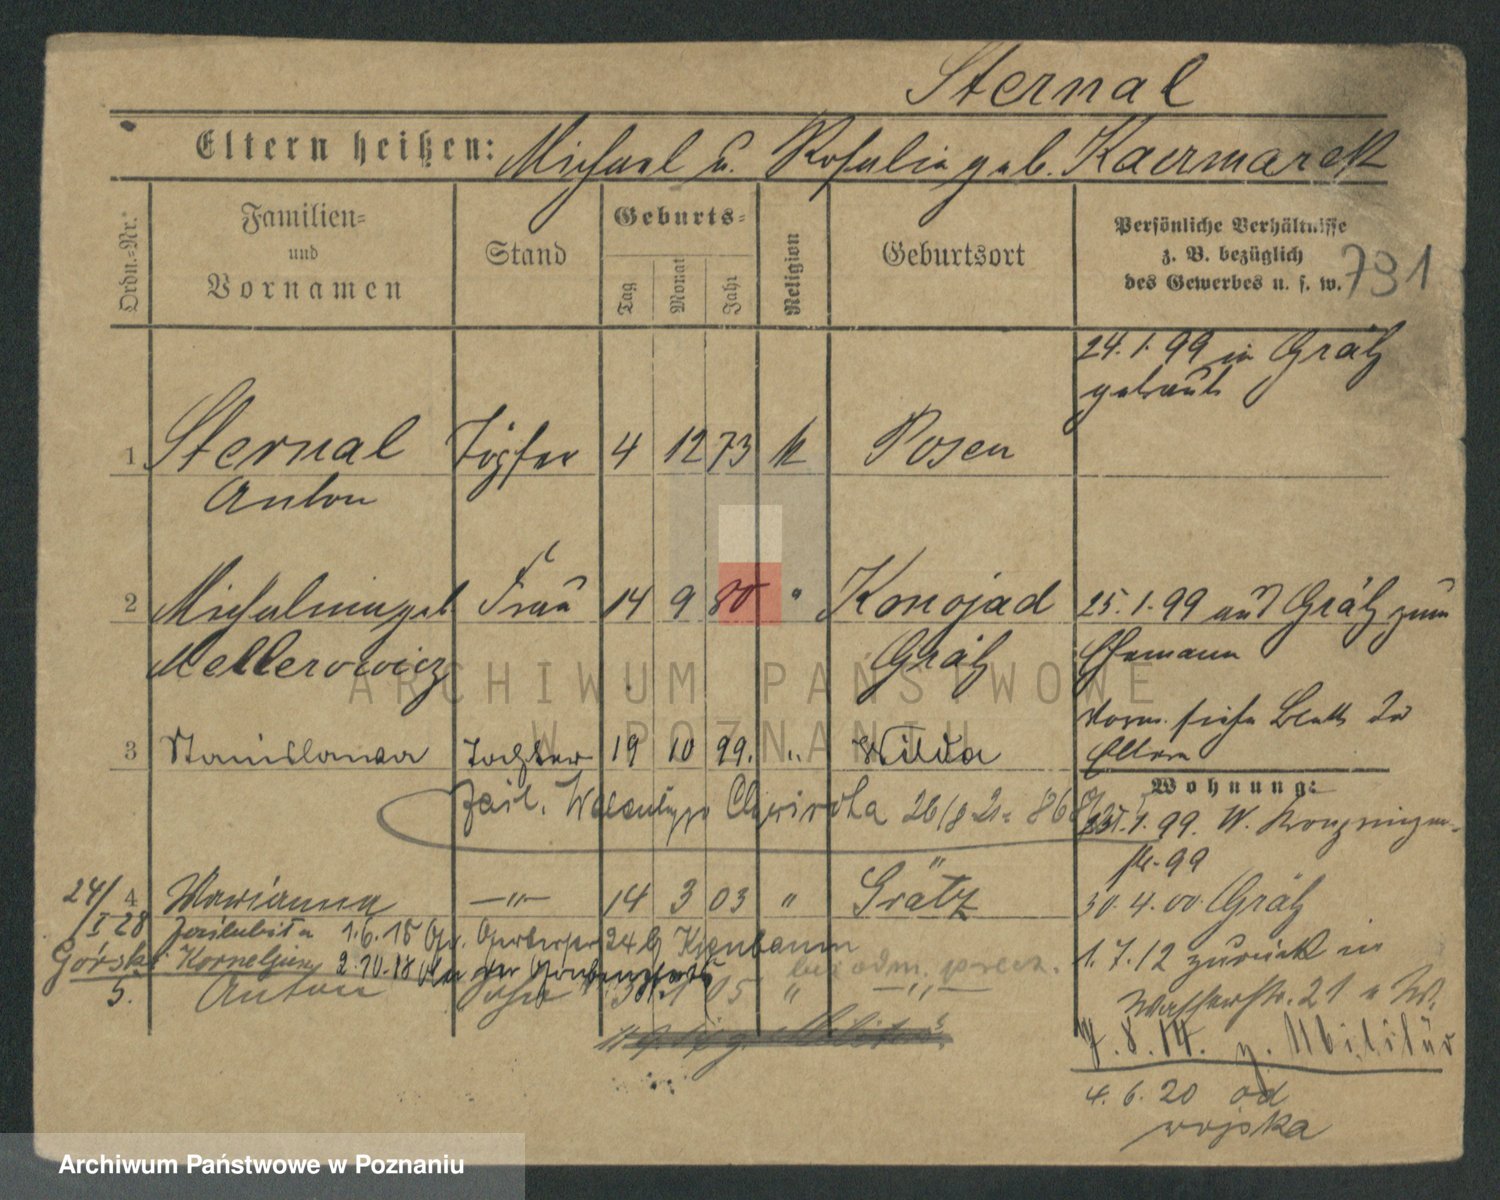 Sternal
Eltern heißen: Michael u. Rosalie geb. Kacrmarek
Ordn.-Nr.
Familien-
und
Vornamen
Stand
Geburts-
Tag
Monat
Jahr
Religion
Geburtsort
Persönliche Verhältnisse
z. B. bezüglich
des Gewerbes u. s. w.
791
24.1.99 in Grätz
getraut
1 Sternal Töpfer 4 12 73 k Posen
Anton
2 Michalina geb. Frau 14 9 80 " Konojad 25.1.99 aus Grätz zum
Mellerowicz Grätz Ehemann
3 Stanislawa Tochter 19 10 99. " Wilda
siehe Blatt der
Eltern
Wohnung:
Chwirola 26/8 21
25.1.99. W.
str. 99
4 Marianna —"— 14 3 03 " Grätz
30.4.00 Grätz
24/I 28 1.6.15
Górski Korneljusz 2.10.18
5. Anton Sohn 31.1 05 " —"—
1.7.12 zurück in
Wasserstr. 21 W.
7.8.14. z. Militär
4.6.20 od
wojska
ARCHIWUM PAŃSTWOWE
W POZNANIU
Archiwum Państwowe w Poznaniu